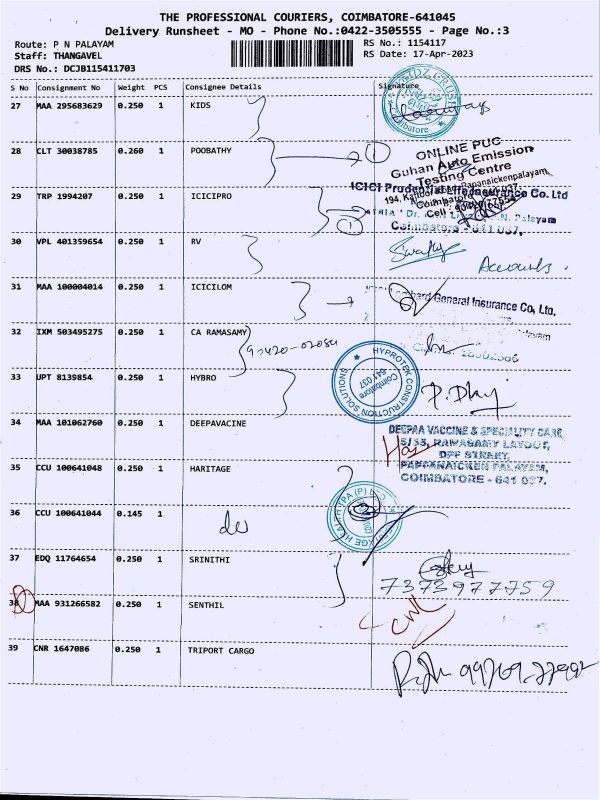 THE PROFESSIONAL COURIERS, COIMBATORE-641045
Delivery Runsheet - MO - Phone No.:0422-3505555 - Page No.:3
Route: P N PALAYAM
RS No.: 1154117
Staff: THANGAVEL
RS Date: 17-Apr-2023
DRS No.: DCJB115411703
S No Consignment No Weight PCS Consignee Details Signature
27 MAA 295683629 0.250 1 KIDS
Coimbatore.
28 CLT 30038785 0.260 1 POOBATHY 1
ONLINE PUC
Guhan Auto Emission
Testing Centre
29 TRP 1994207 0.250 1 ICICIPRO 1
ICICI Prudential Life Insurance Co. Ltd
Coimbatore - 641 037.
30 VPL 401359654 0.250 1 RV
Accounts.
31 MAA 100004014 0.250 1 ICICILOM
Lombard General Insurance Co, Ltd.
32 IXM 503495275 0.250 1 CA RAMASAMY
33 UPT 8139854 0.250 1 HYBRO
HYPROTEK CONSTRUCTION SOLUTIONS
Coimbatore
641 037
34 MAA 101062760 0.250 1 DEEPAVACINE
DEEPAA VACCINE & SPECIALITY CARE
5/33, RAMASAMY LAYOUT,
DPF STREET,
PAPPANAICKEN PALAYAM,
COIMBATORE - 641 037.
35 CCU 100641048 0.250 1 HARITAGE
36 CCU 100641044 0.145 1 do
37 EDQ 11764654 0.250 1 SRINITHI
7373977759
38 MAA 931266582 0.250 1 SENTHIL
39 CNR 1647086 0.250 1 TRIPORT CARGO